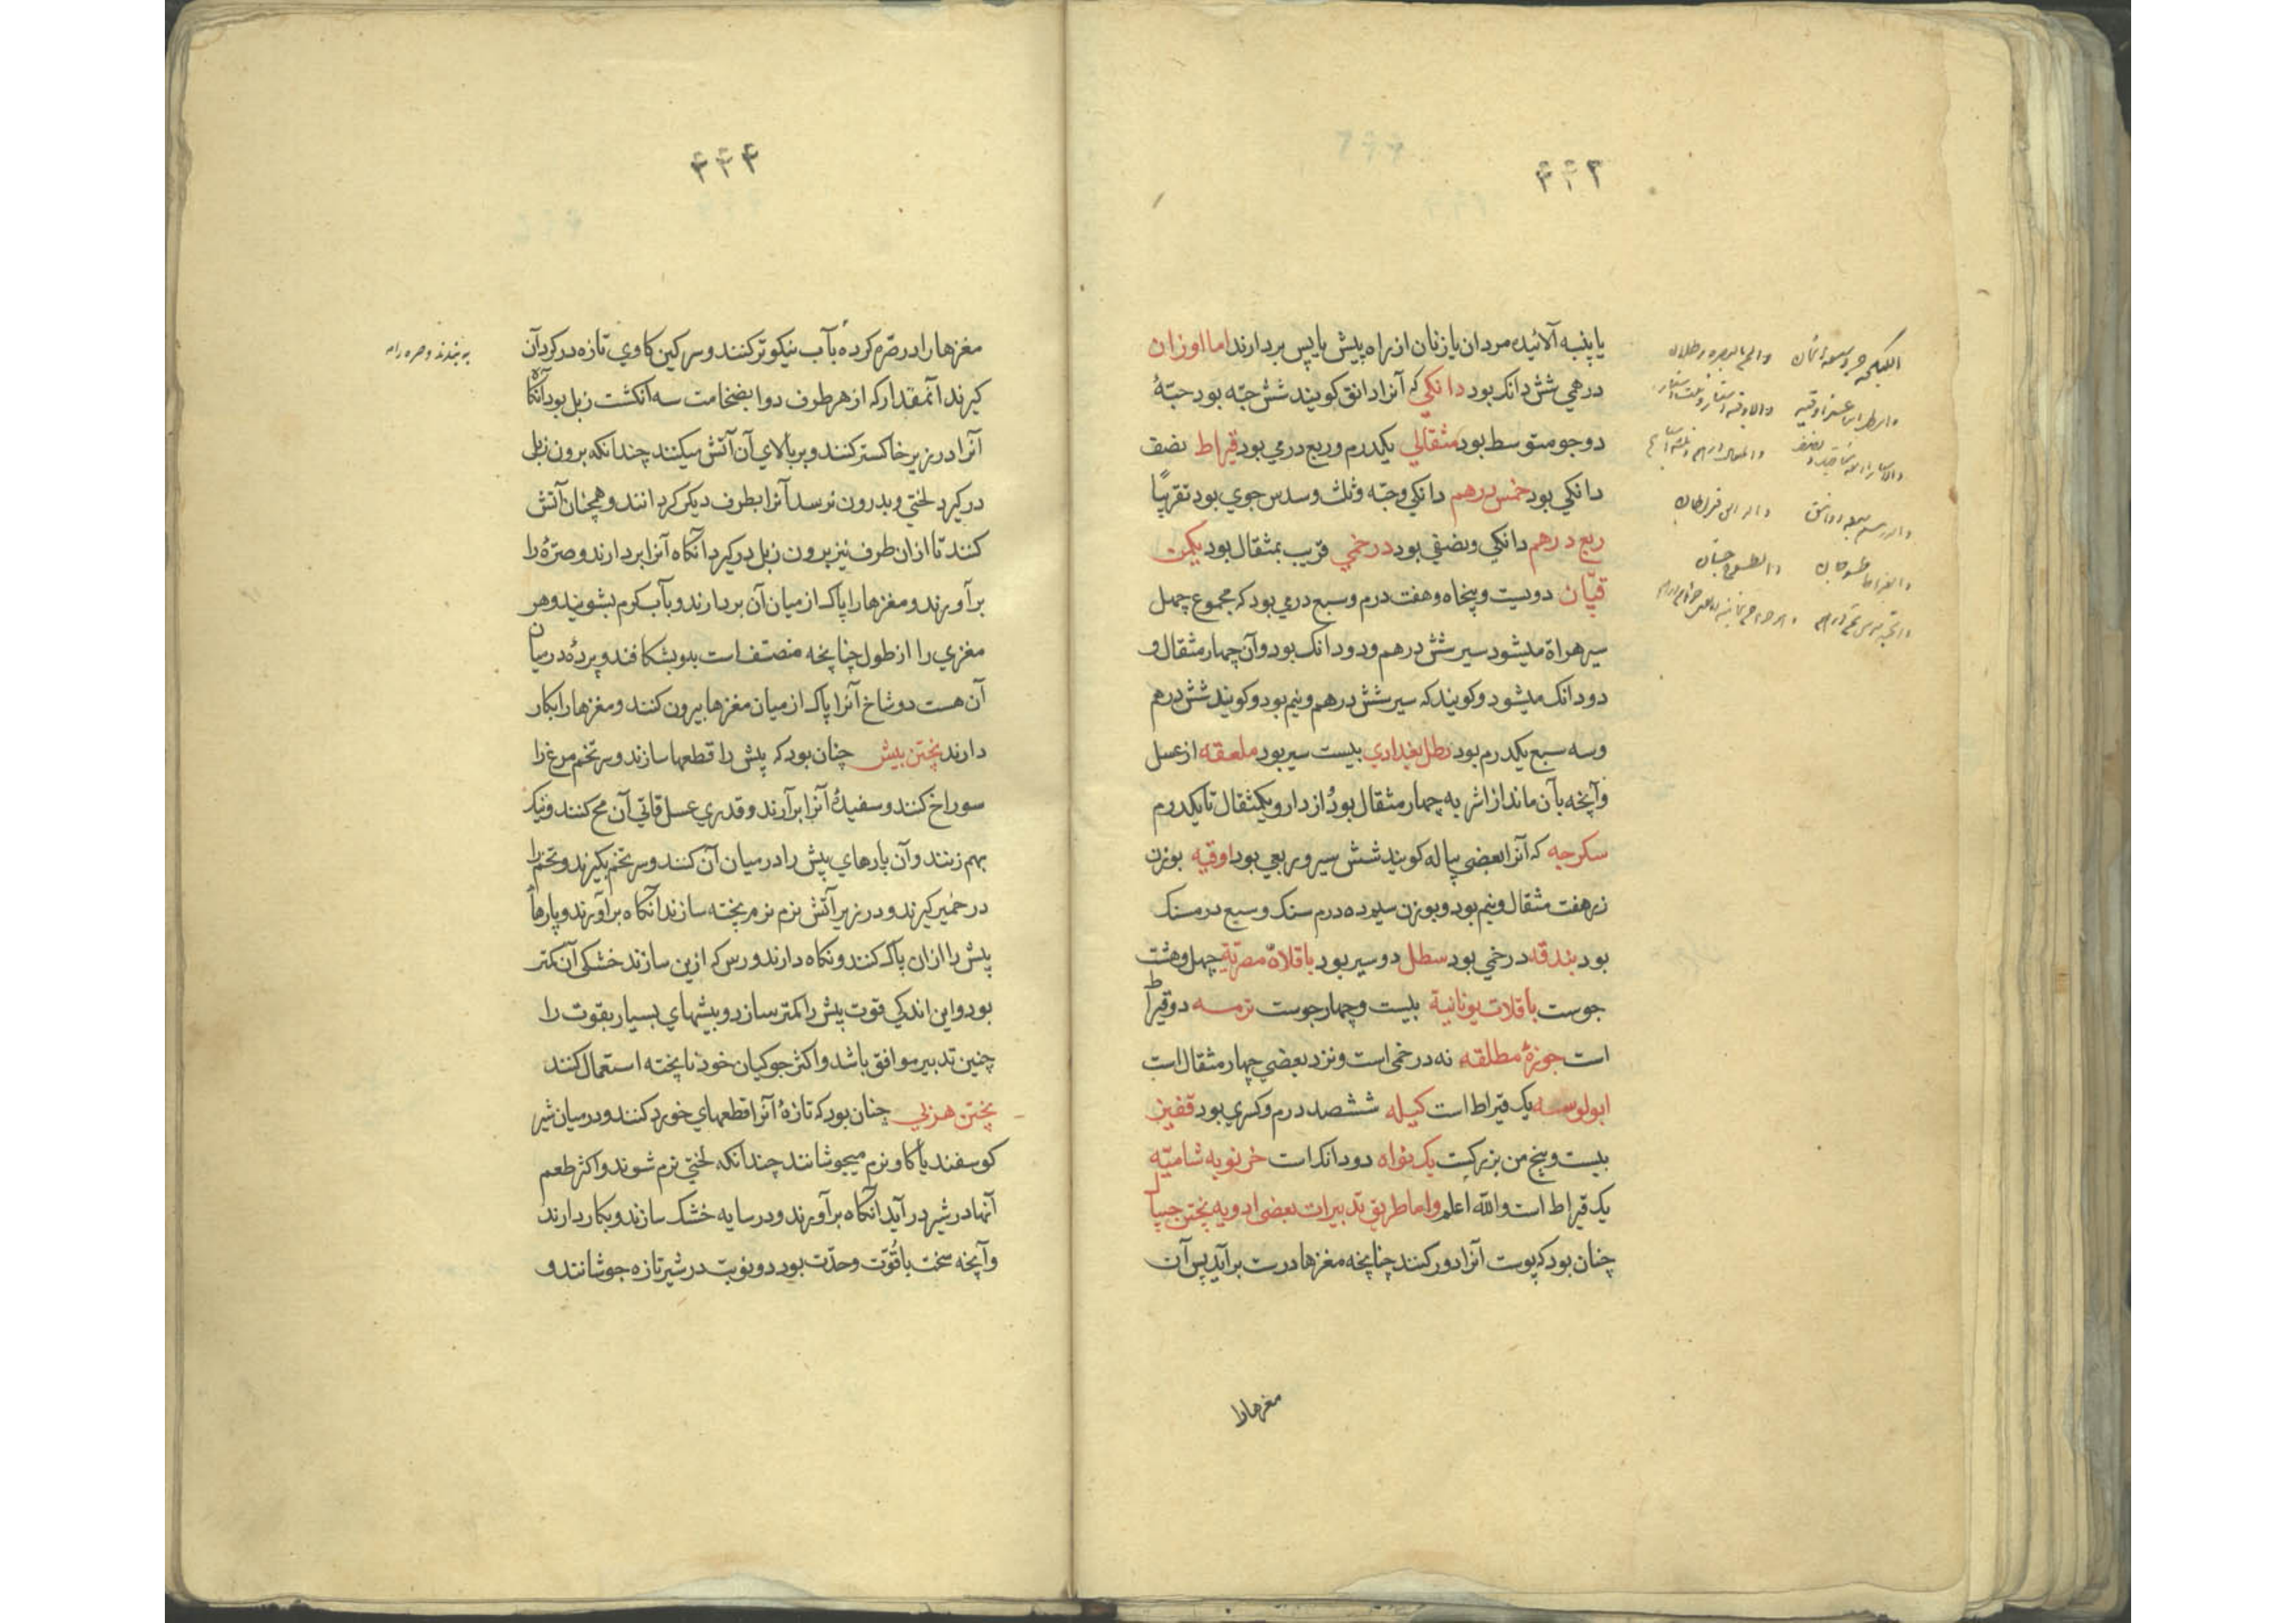 یا پنبه آلائیده مردان یا زنان از راه پیش یا پس بردارند اما اوزان
درمی شش دانک بود دانکی که آنرا دانق کویند شش حبّه بود حبّهٔ
دو جو متوسط بود مثقالی یکدرم و ربع درمی بود قیراط نصف
دانکی بود خمس درهم دانکی و حبّه و ثلث و سدس جوی بود تقریبًا
ربع درهم دانکی و نصفی بود درخمی قریب بمثقال بود یکمن
قپّان دویست و پنجاه و هفت درم و سبع درمی بود که مجموع چهل
سیر هراة میشود سیر شش درهم و دو دانک بود و آن چهار مثقال و
دو دانک میشود و کویند که سیر شش درهم و نیم بود و کویند شش درهم
و سه سبع یکدرم بود رطل بغدادی بیست سیر بود ملعقه از عسل
و آنچه بآن ماند از اشربه چهار مثقال بود و از دارو یکمثقال تا یکدرم
سکرجه که آنرا بعضی پیاله کویند شش سیر و ربعی بود اوقیه بوزن
زر هفت مثقال و نیم بود و بوزن سیم ده درم سنک و سبع درمسنک
بود بندقه درخمی بود سطل دو سیر بود باقلاة مصریّة چهل و هشت
جوست باقلات یونانیة بیست و چهار جوست ترمسه دو قیراط
است جوزهٔ مطلقه نه درخمی است و نزد بعضی چهار مثقال است
ابولوسه یک قیراط است کیله ششصد درم و کسری بود قفیز
بیست و پنج من بزرکست یک نواه دو دانک است خرنوبه شامیّه
یک قیراط است والله اعلم واما طریق تدبیرات بعضی ادویه پختن جیپال
چنان بود که پوست آنرا دور کنند چنانچه مغزها درست برآید پس آن
مغزهارا
مغزها را در صرّه کرده بآب نیکو تر کنند و سرکین کاوی تازه در کرد آن
کیرند آنمقدار که از هر طرف دوا بضخامت سه انکشت زبل بود آنکاه
آنرا در زیر خاکستر کنند و بر بالای آن آتش میکنند چندانکه برون زبل
در کیرد لختی و بدرون نرسد آنرا بطرف دیکر کردانند و همچنان آتش
کنند تا از ان طرف نیز برون زبل در کیرد آنکاه آنرا بردارند و صرّه را
برآورند و مغزها را پاک از میان آن بردارند و بآب کرم بشویند و هر
مغزی را از طول چنانچه منصّف است بدو بشکافند و پردهٔ در میان
آن هست دو شاخ آنرا پاک از میان مغزها بیرون کنند و مغزها را بکار
دارند پختن بیش چنان بود که بیش را قطعها سازند و سر تخم مرغ را
سوراخ کنند و سفیدهٔ آنرا برآرند و قدری عسل قاتی آن مح کنند و نیک
بهم زنند و آن پارهای بیش را در میان آن کنند و سر تخم بکیرند و تخم را
در خمیر کیرند و در زیر آتش نرم نرم پخته سازند آنکاه برآورند و پارهاء
بیش را ازان پاک کنند و نکاه دارند و رس که ازین سازند خشکی آن کمتر
بود و این اندکی قوت بیش را کمتر سازد و بیشهای بسیار بقوت را
چنین تدبیر موافق باشد و اکثر جوکیان خود ناپخته استعمال کنند
پختن هزبی چنان بود که تازهٔ آنرا قطعهای خورد کنند و در میان شیر
کوسفند یا کاو نرم میجوشانند چندانکه لختی نرم شوند و اکثر طعم
آنها در شیر در آید آنکاه برآورند و در سایه خشک سازند و بکار دارند
و آنچه سخت با قوّت و حدّت بود دو نوبت در شیر تازه جوشانند و